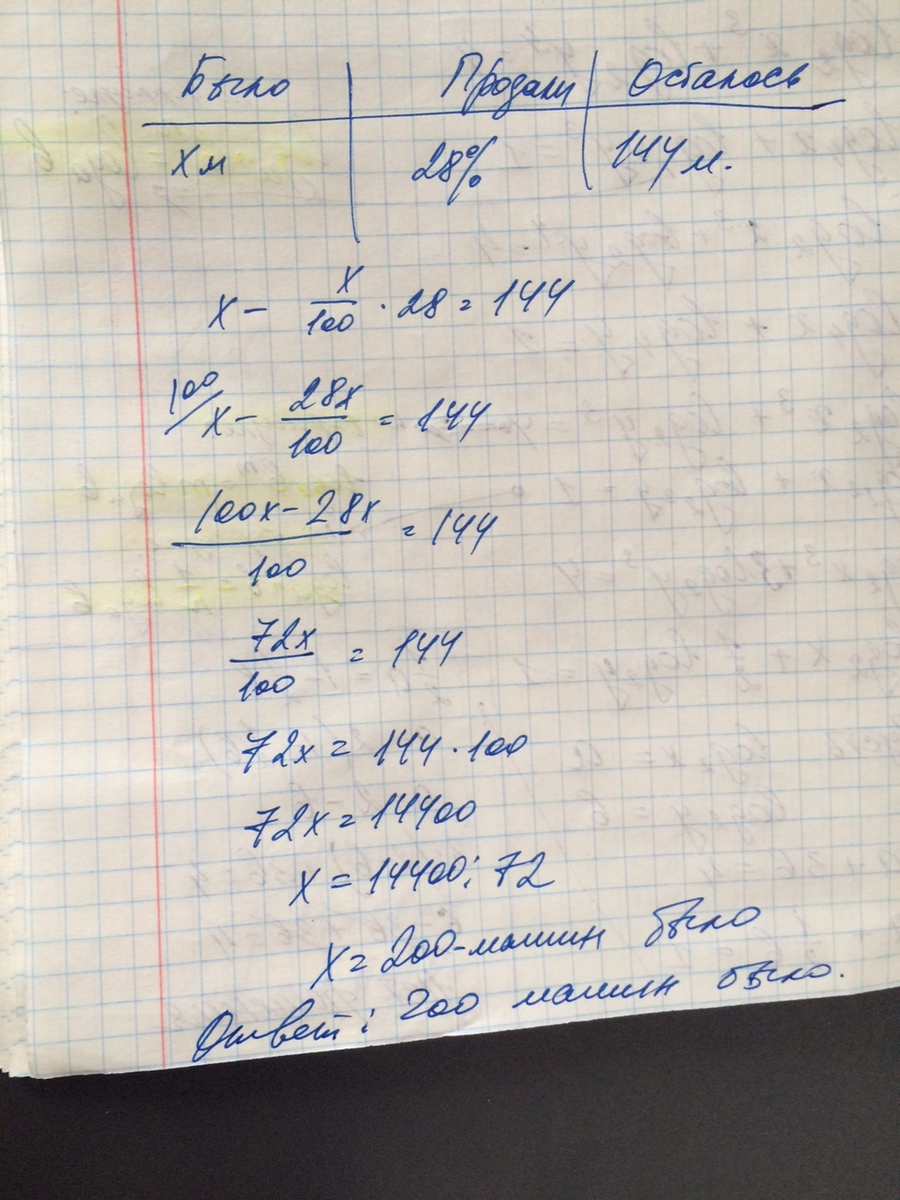 Было Продали Осталось
Хм 28% 144 м.
x - x/100 · 28 = 144
100/ x - 28x/100 = 144
100x - 28x/100 = 144
72x/100 = 144
72x = 144 · 100
72x = 14400
x = 14400 : 72
x = 200 - машин было
Ответ: 200 машин было.